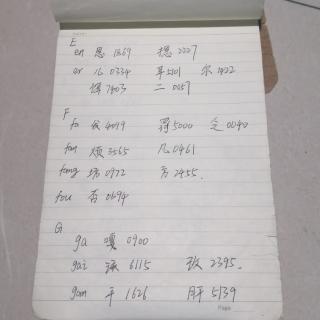 E
en 恩 1869 摁 2227
er 儿 0334 耳 5101 尔 1422
饵 7403 二 0057
F
fa 发 4099 罚 5000 乏 0040
fan 烦 3565 凡 0461
fang 坊 0972 方 2455.
fou 否 0694
G
ga 嘎 0900
gai 该 6115 改 2395.
gan 干 1626 肝 5139
Page